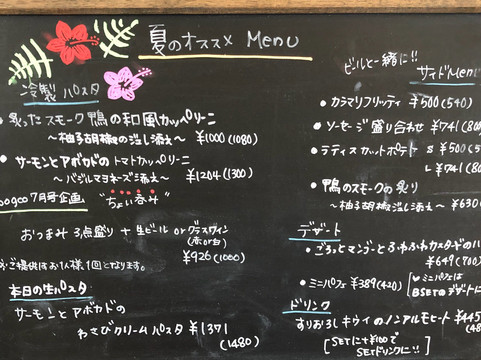 夏のオススメ Menu
冷製パスタ
炙ったスモーク鴨の和風カッペリーニ
～柚子胡椒の泡し添え～ ¥1000(1080)
サーモンとアボカドのトマトカッペリーニ
～バジルマヨネーズ添え～ ¥1204(1300)
7月号企画 "ちょい呑み"
おつまみ3点盛り+生ビール orグラスワイン
(赤or白)
¥926(1000)
ご提供はお1人様1回となります。
本日の生パスタ
サーモンとアボカドの
わさびクリームパスタ ¥1371
(1480)
ビールと一緒に!!
サイドMenu
カラマリフリッティ ¥500(540)
ソーセージ盛り合わせ ¥741(80
ラティスカットポテト S ¥500(5
L ¥741(80
鴨のスモークの炙り
～柚子胡椒泡し添え～ ¥630
デザート
ごろっとマンゴーとふわふわカスタードの
¥649(700)
ミニパフェ ¥389(420)
ミニパフェは
BSETのデザートに
ドリンク
すりおろしキウイのノンアルモヒート ¥445
(48
SETに+¥100で
SETドリンクに!!